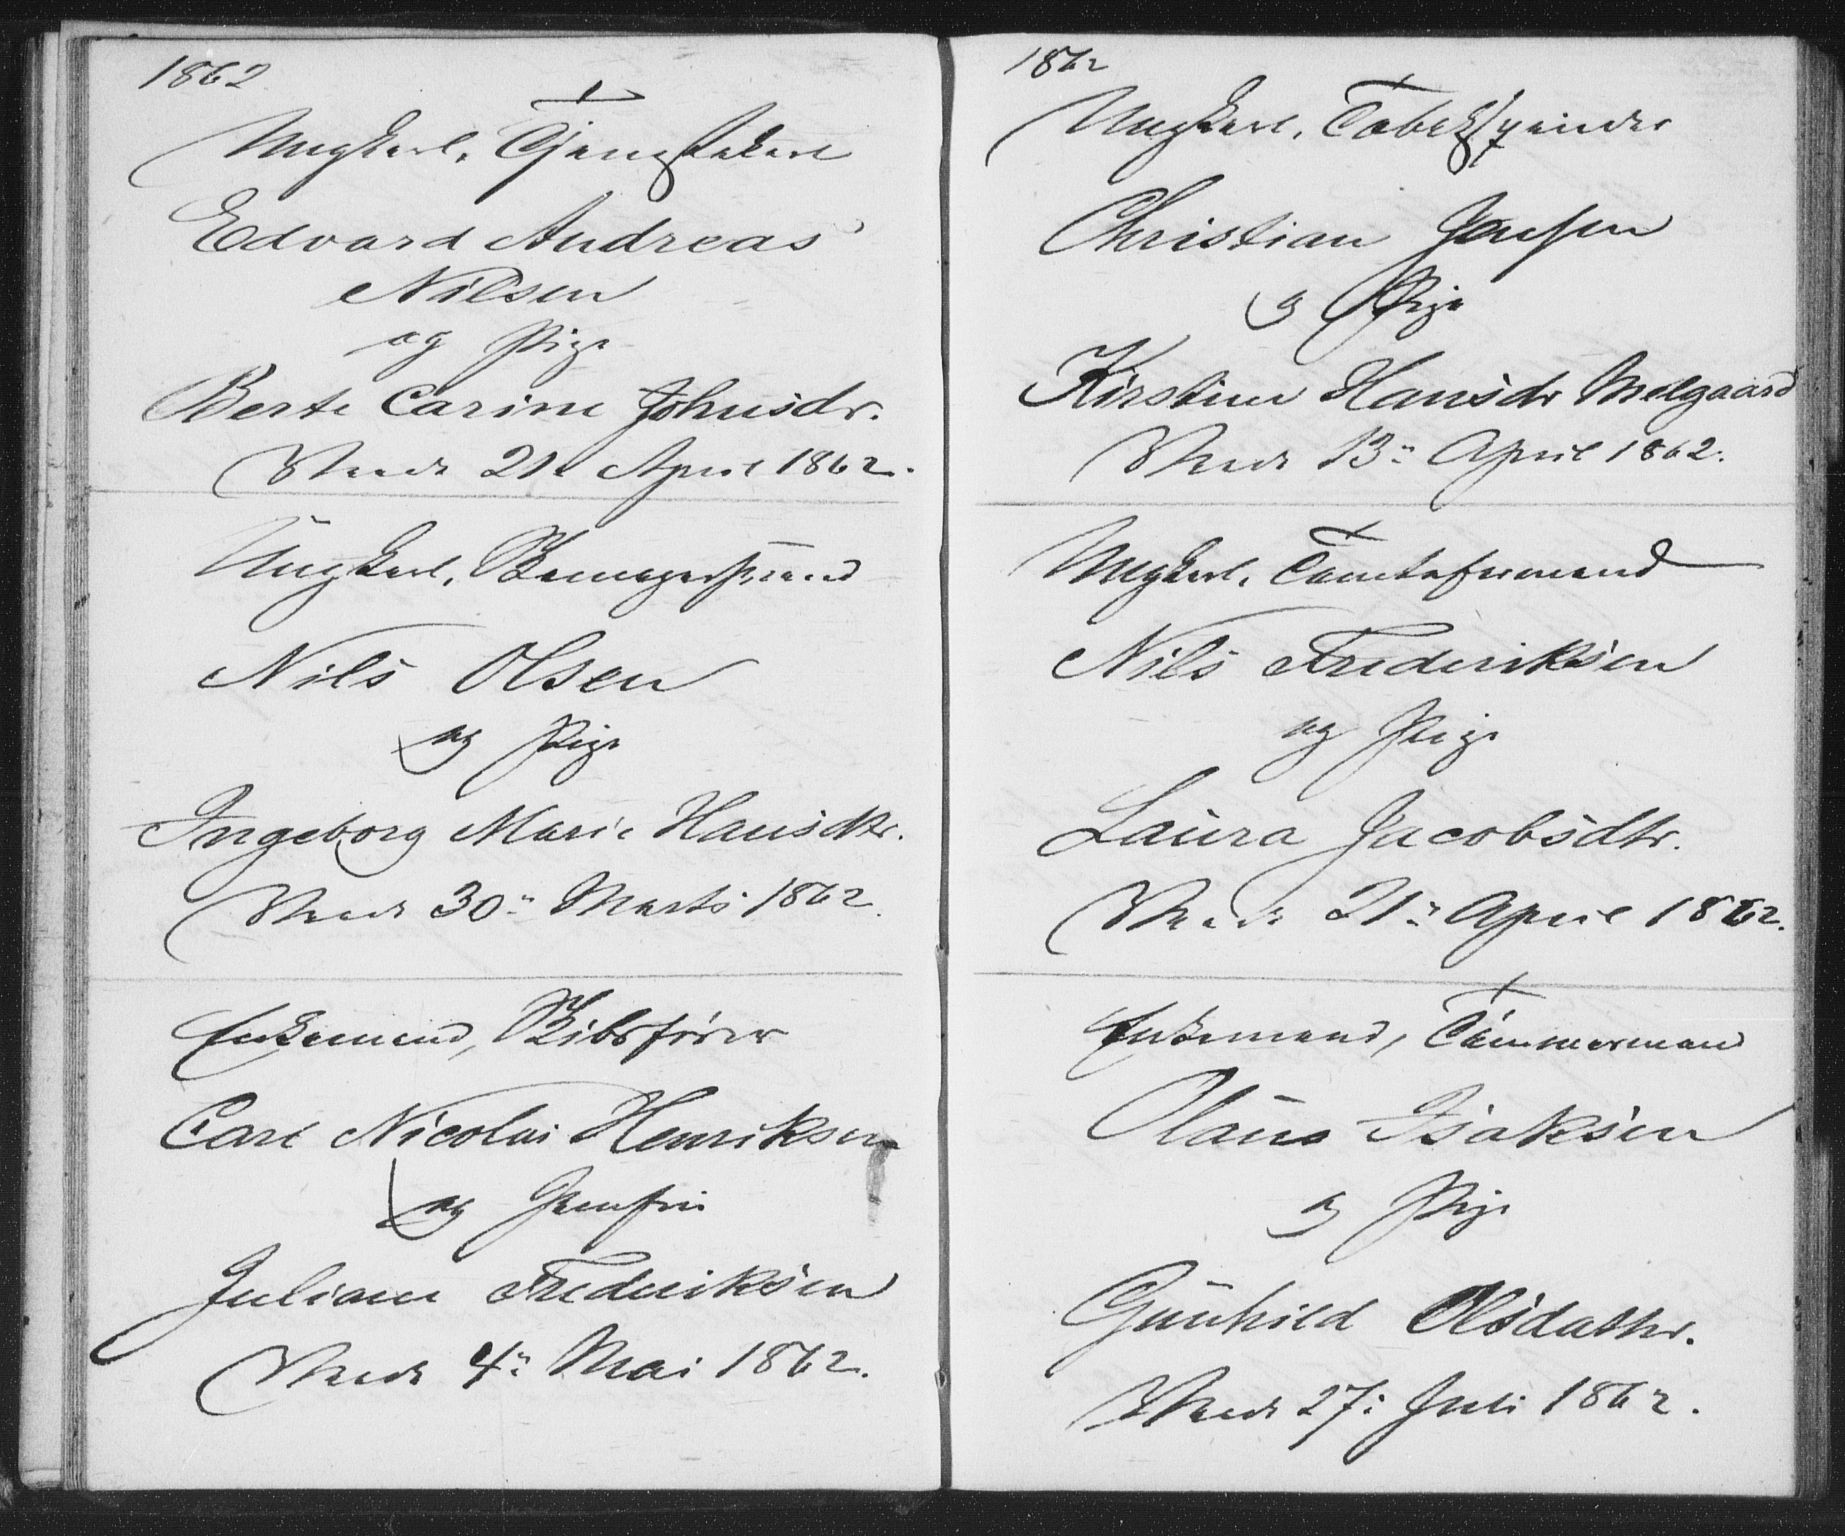 1862
Ungkarl, Tjenestekarl
Edvard Andreas
Nilsen
og Pige
Berte Carine Johnsdr.
Viede 21de April 1862.
Ungkarl,
Nils Olsen
og Pige
Ingeborg Marie Hansdtr.
Viede 30" Marts 1862.
Enkemand, Skibsfører
Carl Nicolai Henriksen
og Jomfru
Juliane Frederiksen
Viede 4" Mai 1862.
1862
Ungkarl, Tobakspinder
Christian Jensen
og Pige
Kirstine Hansdr Melgaard
Viede 13" April 1862.
Ungkarl, Tomtehusmand
Nils Frederiksen
og Pige
Laura Jacobsdtr.
Viede 21" April 1862.
Enkemand, Tømmermand
Olaus Isaksen
og Pige
Gunhild Olsdatter.
Viede 27: Juli 1862.